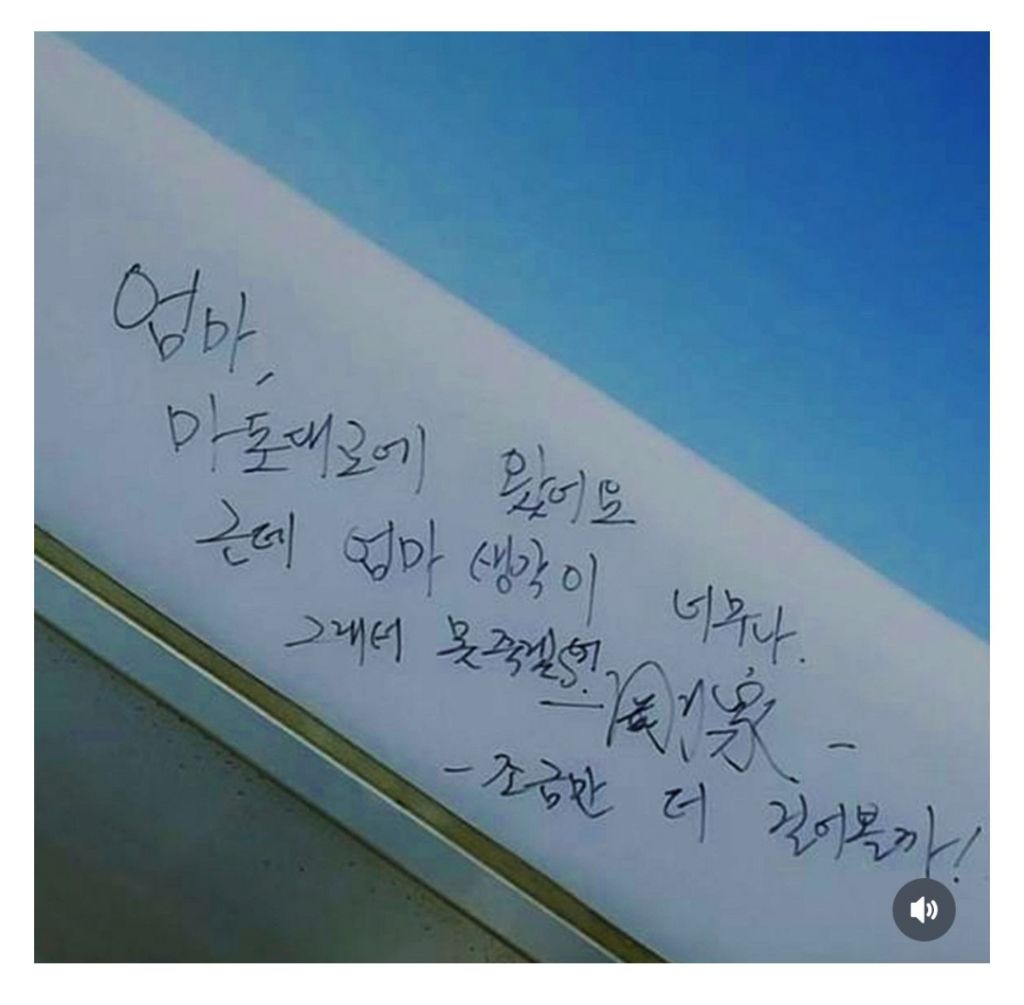 엄마,
마포대로에 왔어요
근데 엄마 생각이 너무나.
그래서 못죽겠어.
- 조금만 더 걸어볼까!